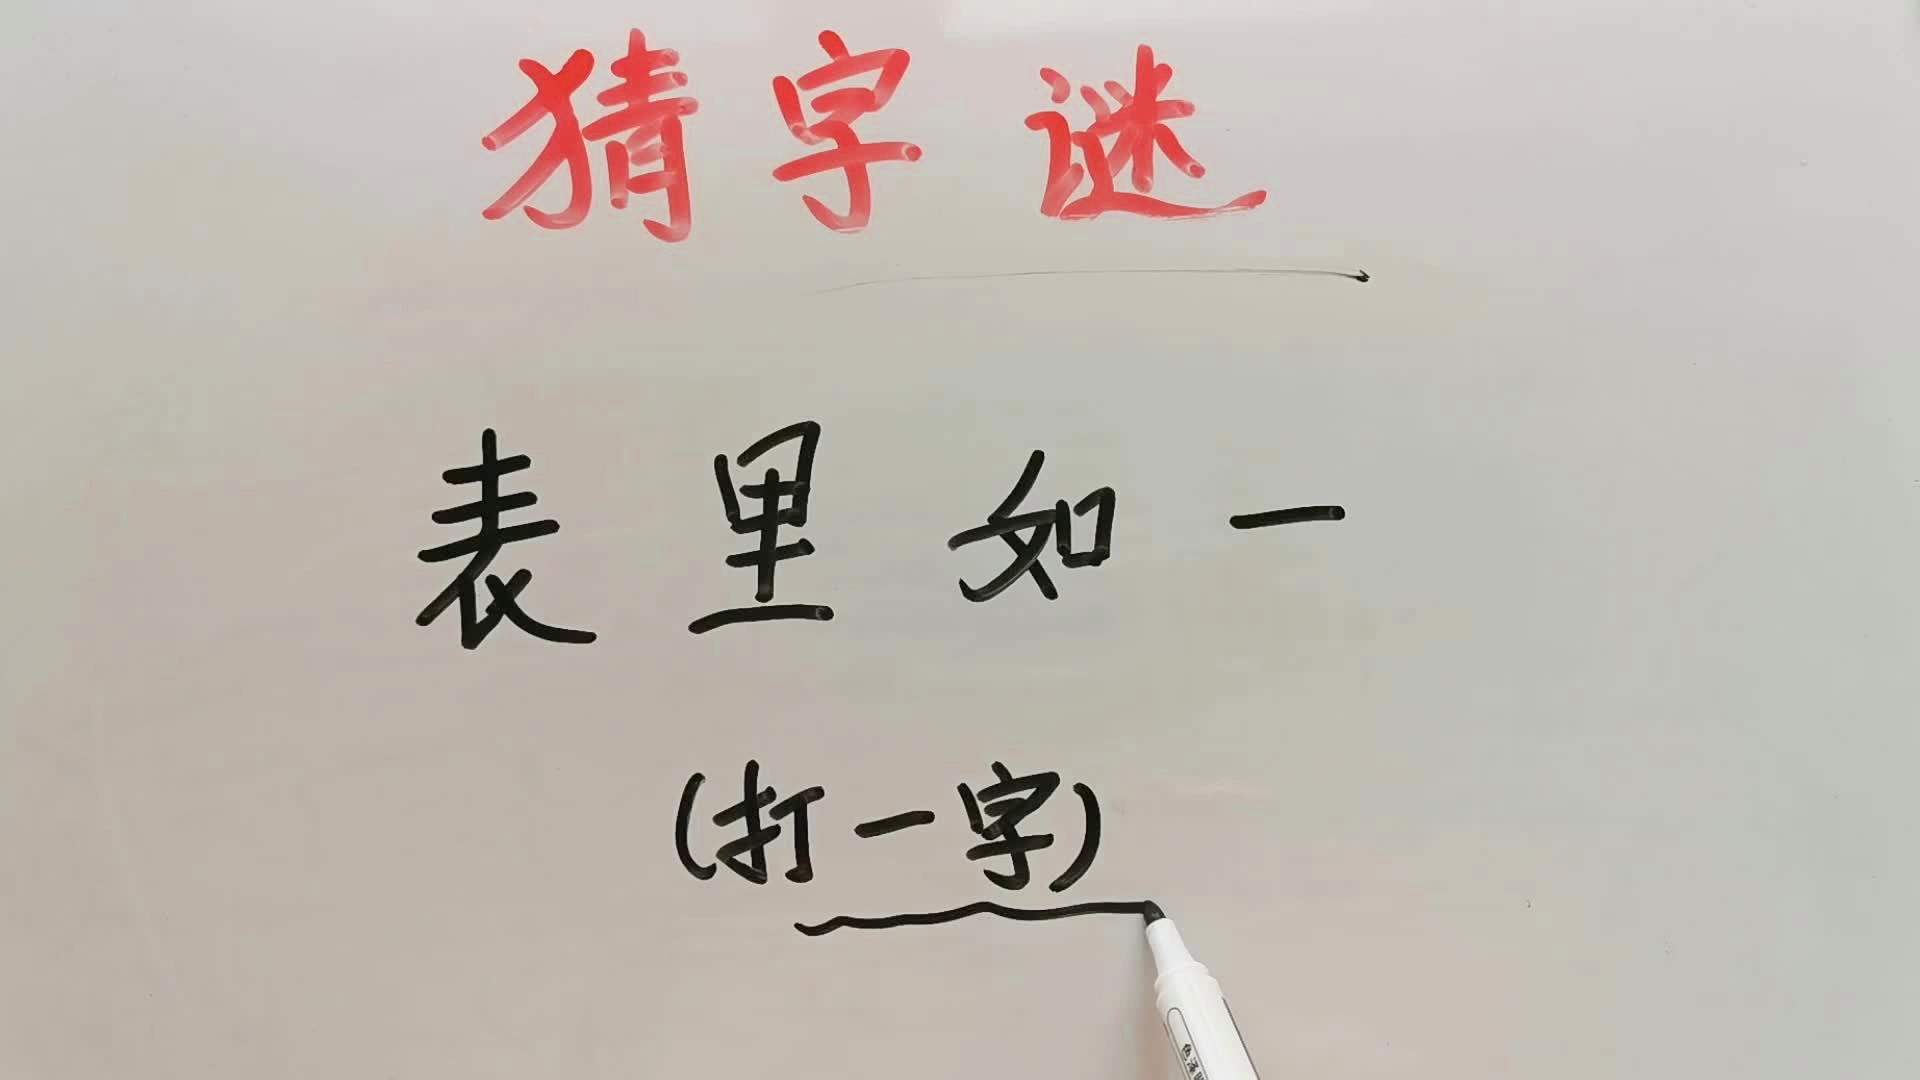 猜字谜
表里如一
(打一字)